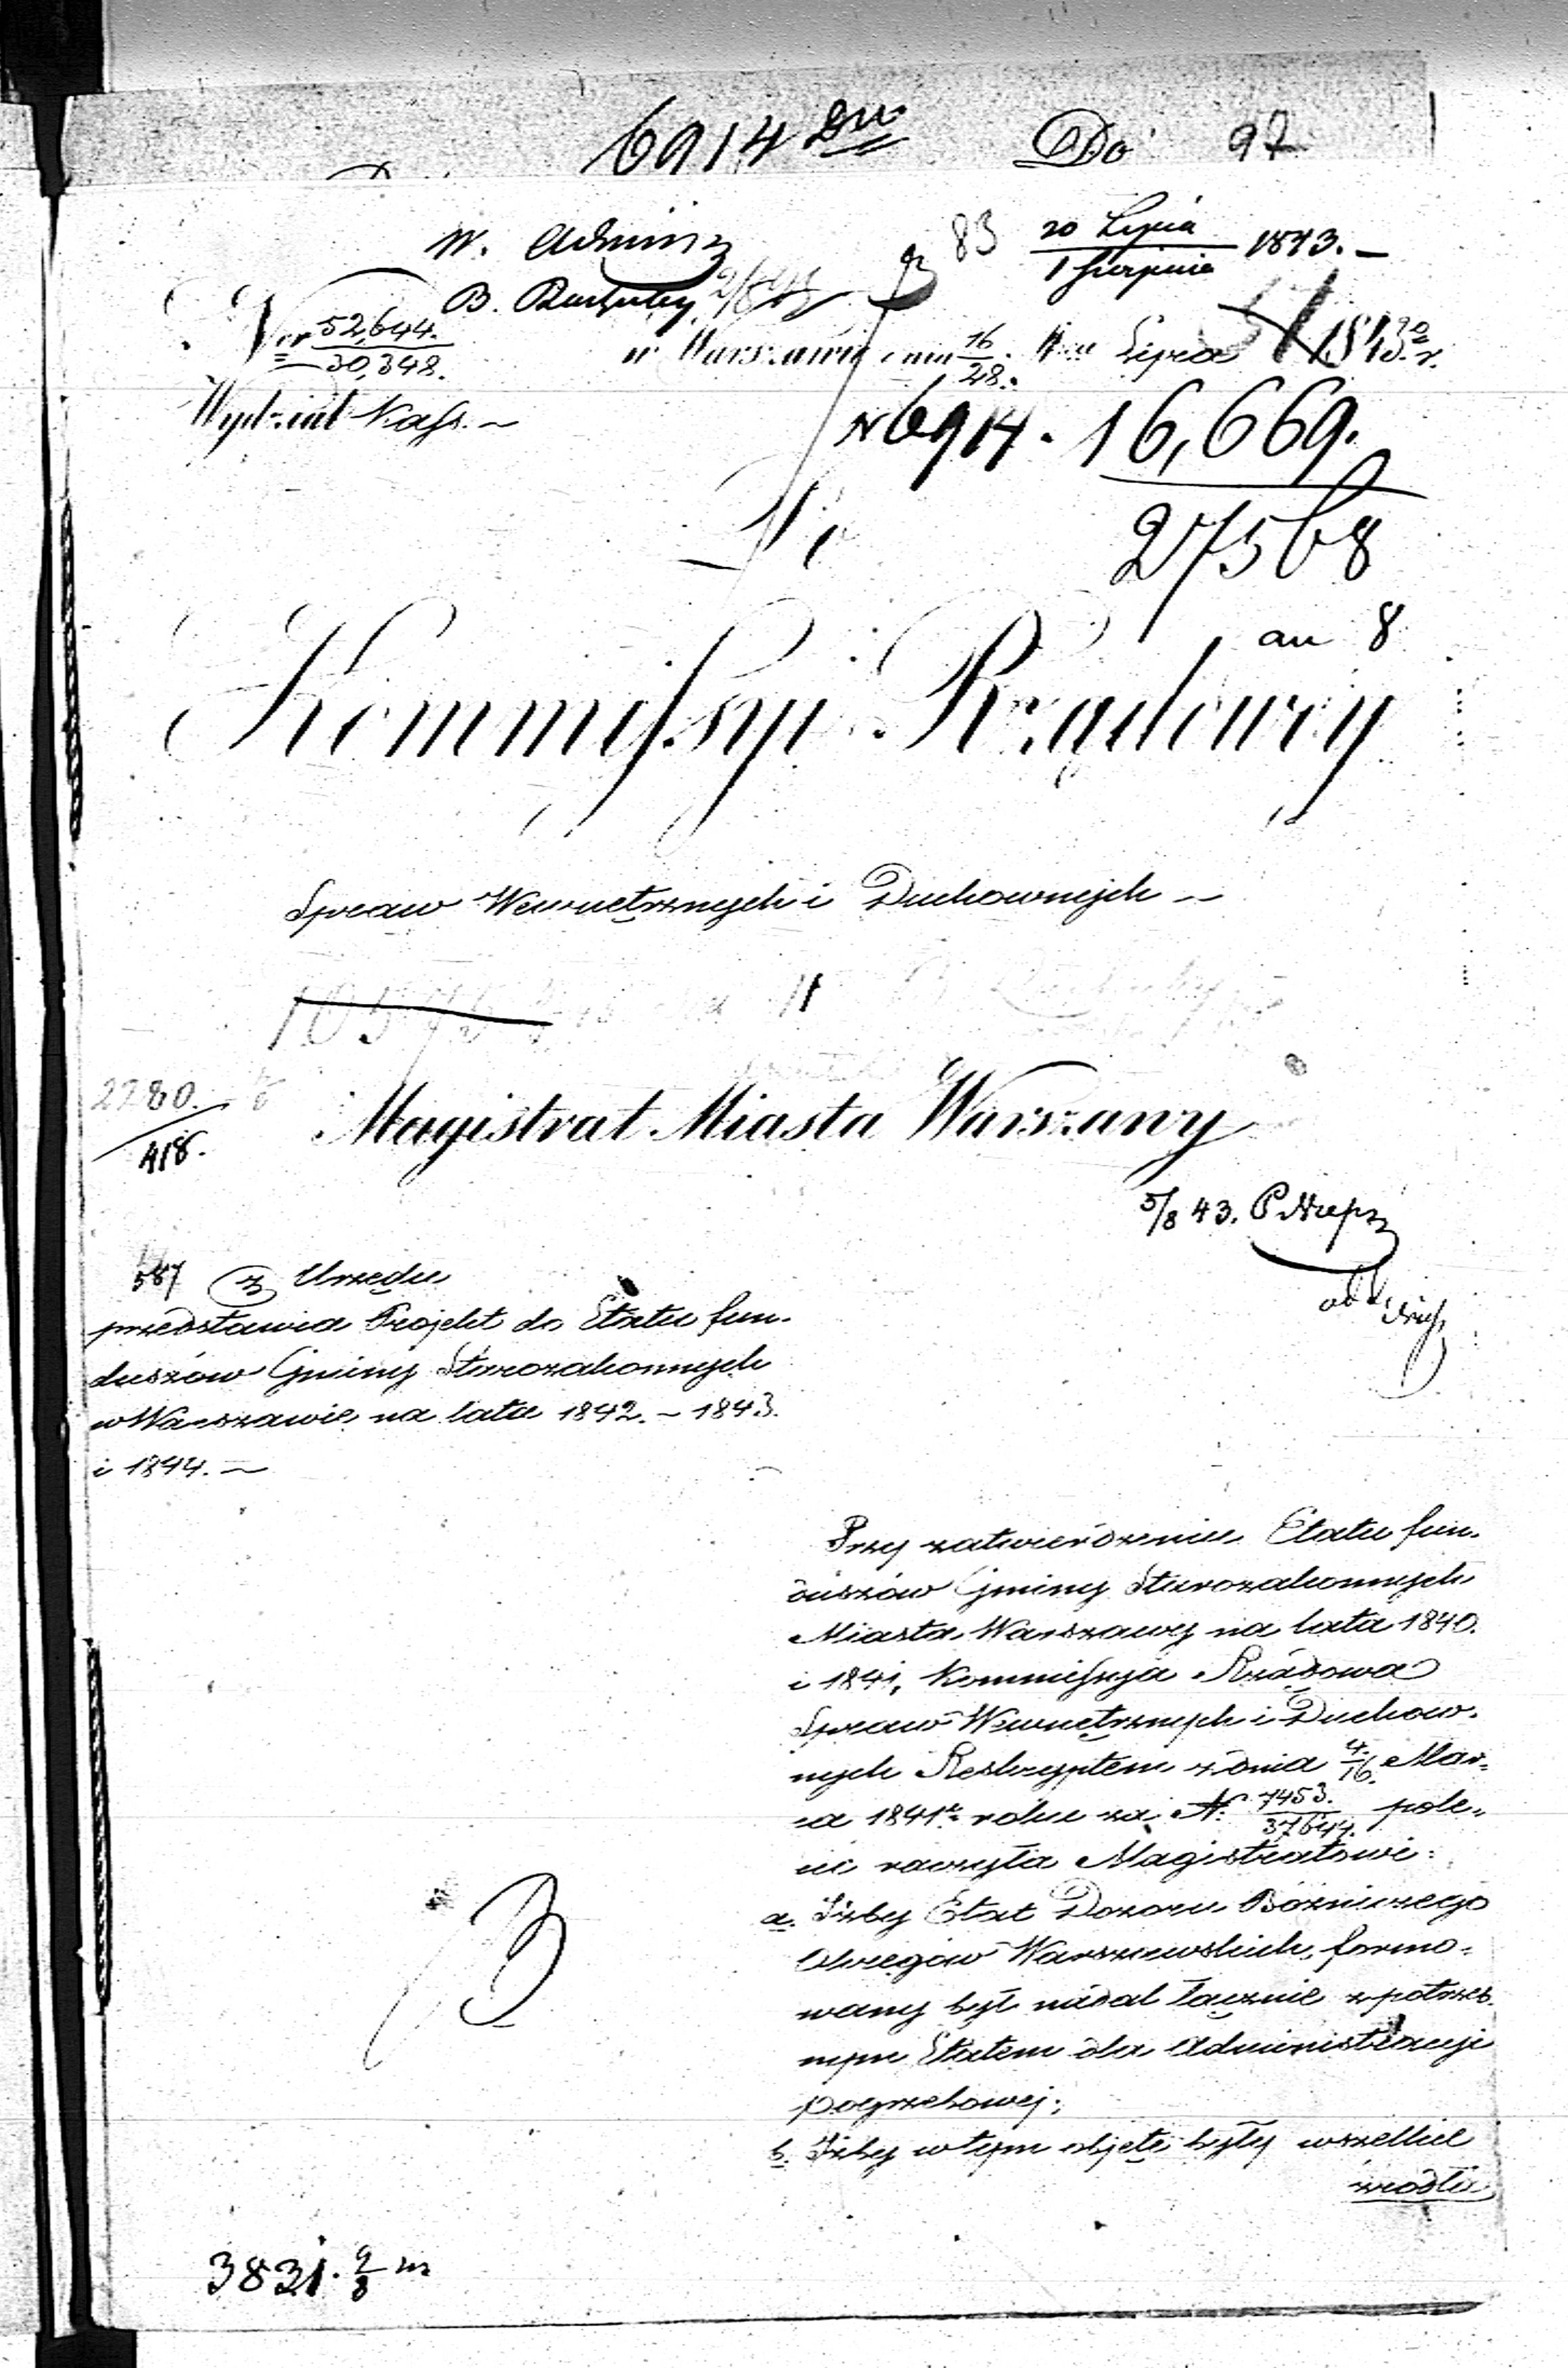 6914 Do 97
W. Admin
83 20 Lipca 1843.
1 Sierpnia
B.
Ner 52,644.
30,348.
w Warszawie dnia 16/28. Lipca 1843 r.
Wydział Kass.
N 6914. 16,669.
27568
Do
au 8
Kommissyi Rządowéy
Spraw Wewnętrznych i Duchownych
10595
2280.
418.
Magistrat Miasta Warszawy
5/8 43.
587 z Urzędu
przedstawia Projekt do Etatu fun-
duszów Gminy Starozakonnych
w Warszawie, na lata 1842. – 1843.
i 1844. –
Przy zatwierdzeniu Etatu fun-
duszów Gminy Starozakonnych
Miasta Warszawy na lata 1840.
i 1841, Kommissyja Rządowa
Spraw Wewnętrznych i Duchow-
nych Reskryptem z dnia 4/16. Mar-
ca 1841 r. roku za N. 7453./37644. pole-
cić raczyła Magistratowi:
a. Iżby Etat Dozoru Bożniczego
Okręgów Warszawskich, formo-
wany był nadal łącznie z potrzeb-
nym Etatem dla Administracyi
pogrzebowej;
b. Iżby w tym objęte były wszelkie
źródła
3831. 9/8